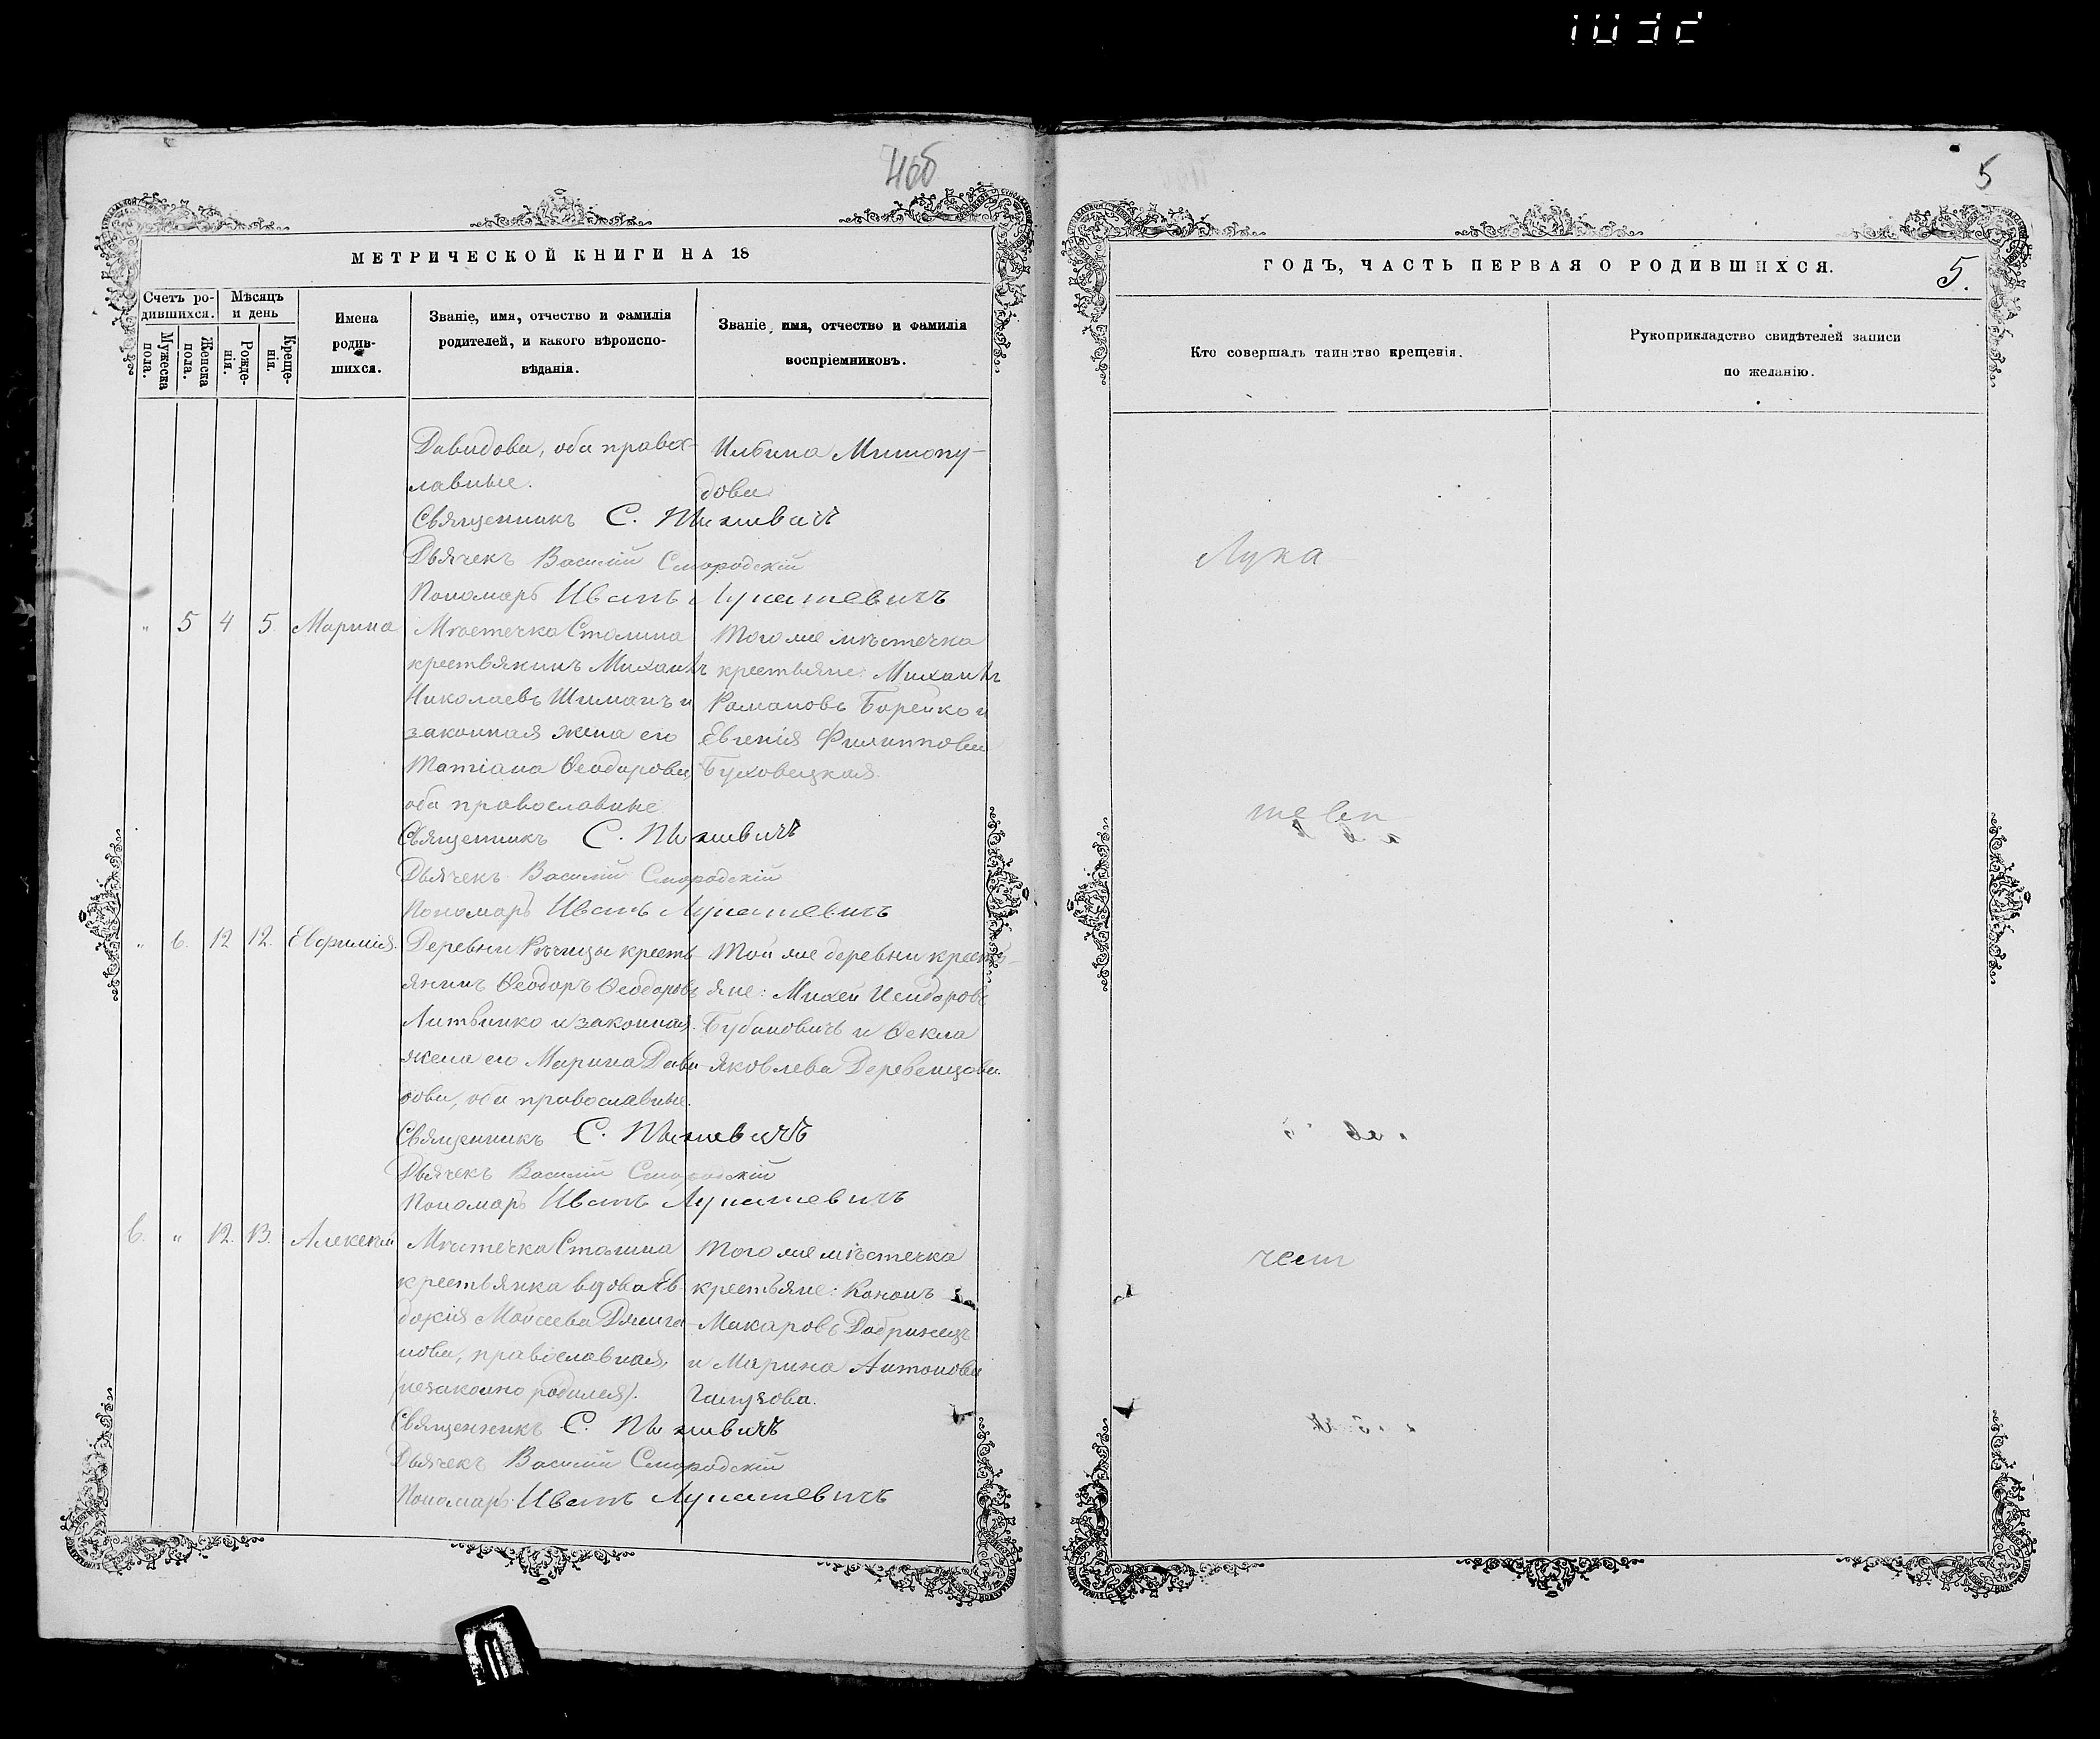 4об
5
МЕТРИЧЕСКОЙ КНИГИ НА 18
Счетъ ро-
дившихся.
Мѣсяцъ
и день
Мужеска
пола.
Женска
пола.
Рожде-
нія.
Креще-
нія.
Имена
родив-
шихся.
Званіе, имя, отчество и фамилія
родителей, и какого вѣроиспо-
вѣданія.
Званіе, имя, отчество и фамилія
воспріемниковъ.
Давидова, оба правос-
лавные.
дова.
Священникъ С.
Дьячекъ Василій Смородскій
Пономарь Иванъ Лукашевичъ
" 5 4 5 Марина
Мѣстечка Столина
крестьянинъ Михаилъ
Николаевъ Шиманъ и
законная жена его
Татіана Ѳеодорова,
оба православные
Того же мѣстечка
крестьяне: Михаилъ
Романовъ Борейко и
Евгенія Филиппова
Буховецкая.
Священникъ С.
Дьячекъ Василій Смородскій
Пономарь Иванъ Лукашевичъ
" 6. 12 12. Евфимія.
Деревни Рѣчицы кресть
янинъ Ѳеодоръ Ѳеодоровъ
Литвинко и законная
жена его Марина Дави
дова, оба православные.
Той же деревни кресть-
яне: Михей Исидоровъ
Бубановичъ и Ѳекла
Яковлева Деревенцова.
Священникъ С.
Дьячекъ Василій Смородскій
Пономарь Иванъ Лукашевичъ
6. " 12. 13. Алексей
Мѣстечка Столина
крестьянка вдова Ев
докія Моисеева
нова, православная,
(незаконно родился).
Того же мѣстечка
крестьяне: Кононъ
Макаровъ Добринецъ
и Марина Антонова
Священникъ С.
Дьячекъ Василій Смородскій
Пономарь Иванъ Лукашевичъ
ГОДЪ, ЧАСТЬ ПЕРВАЯ О РОДИВШИХСЯ.
5.
Кто совершалъ таинство крещенія.
Рукоприкладство свидѣтелей записи
по желанію.
Лука